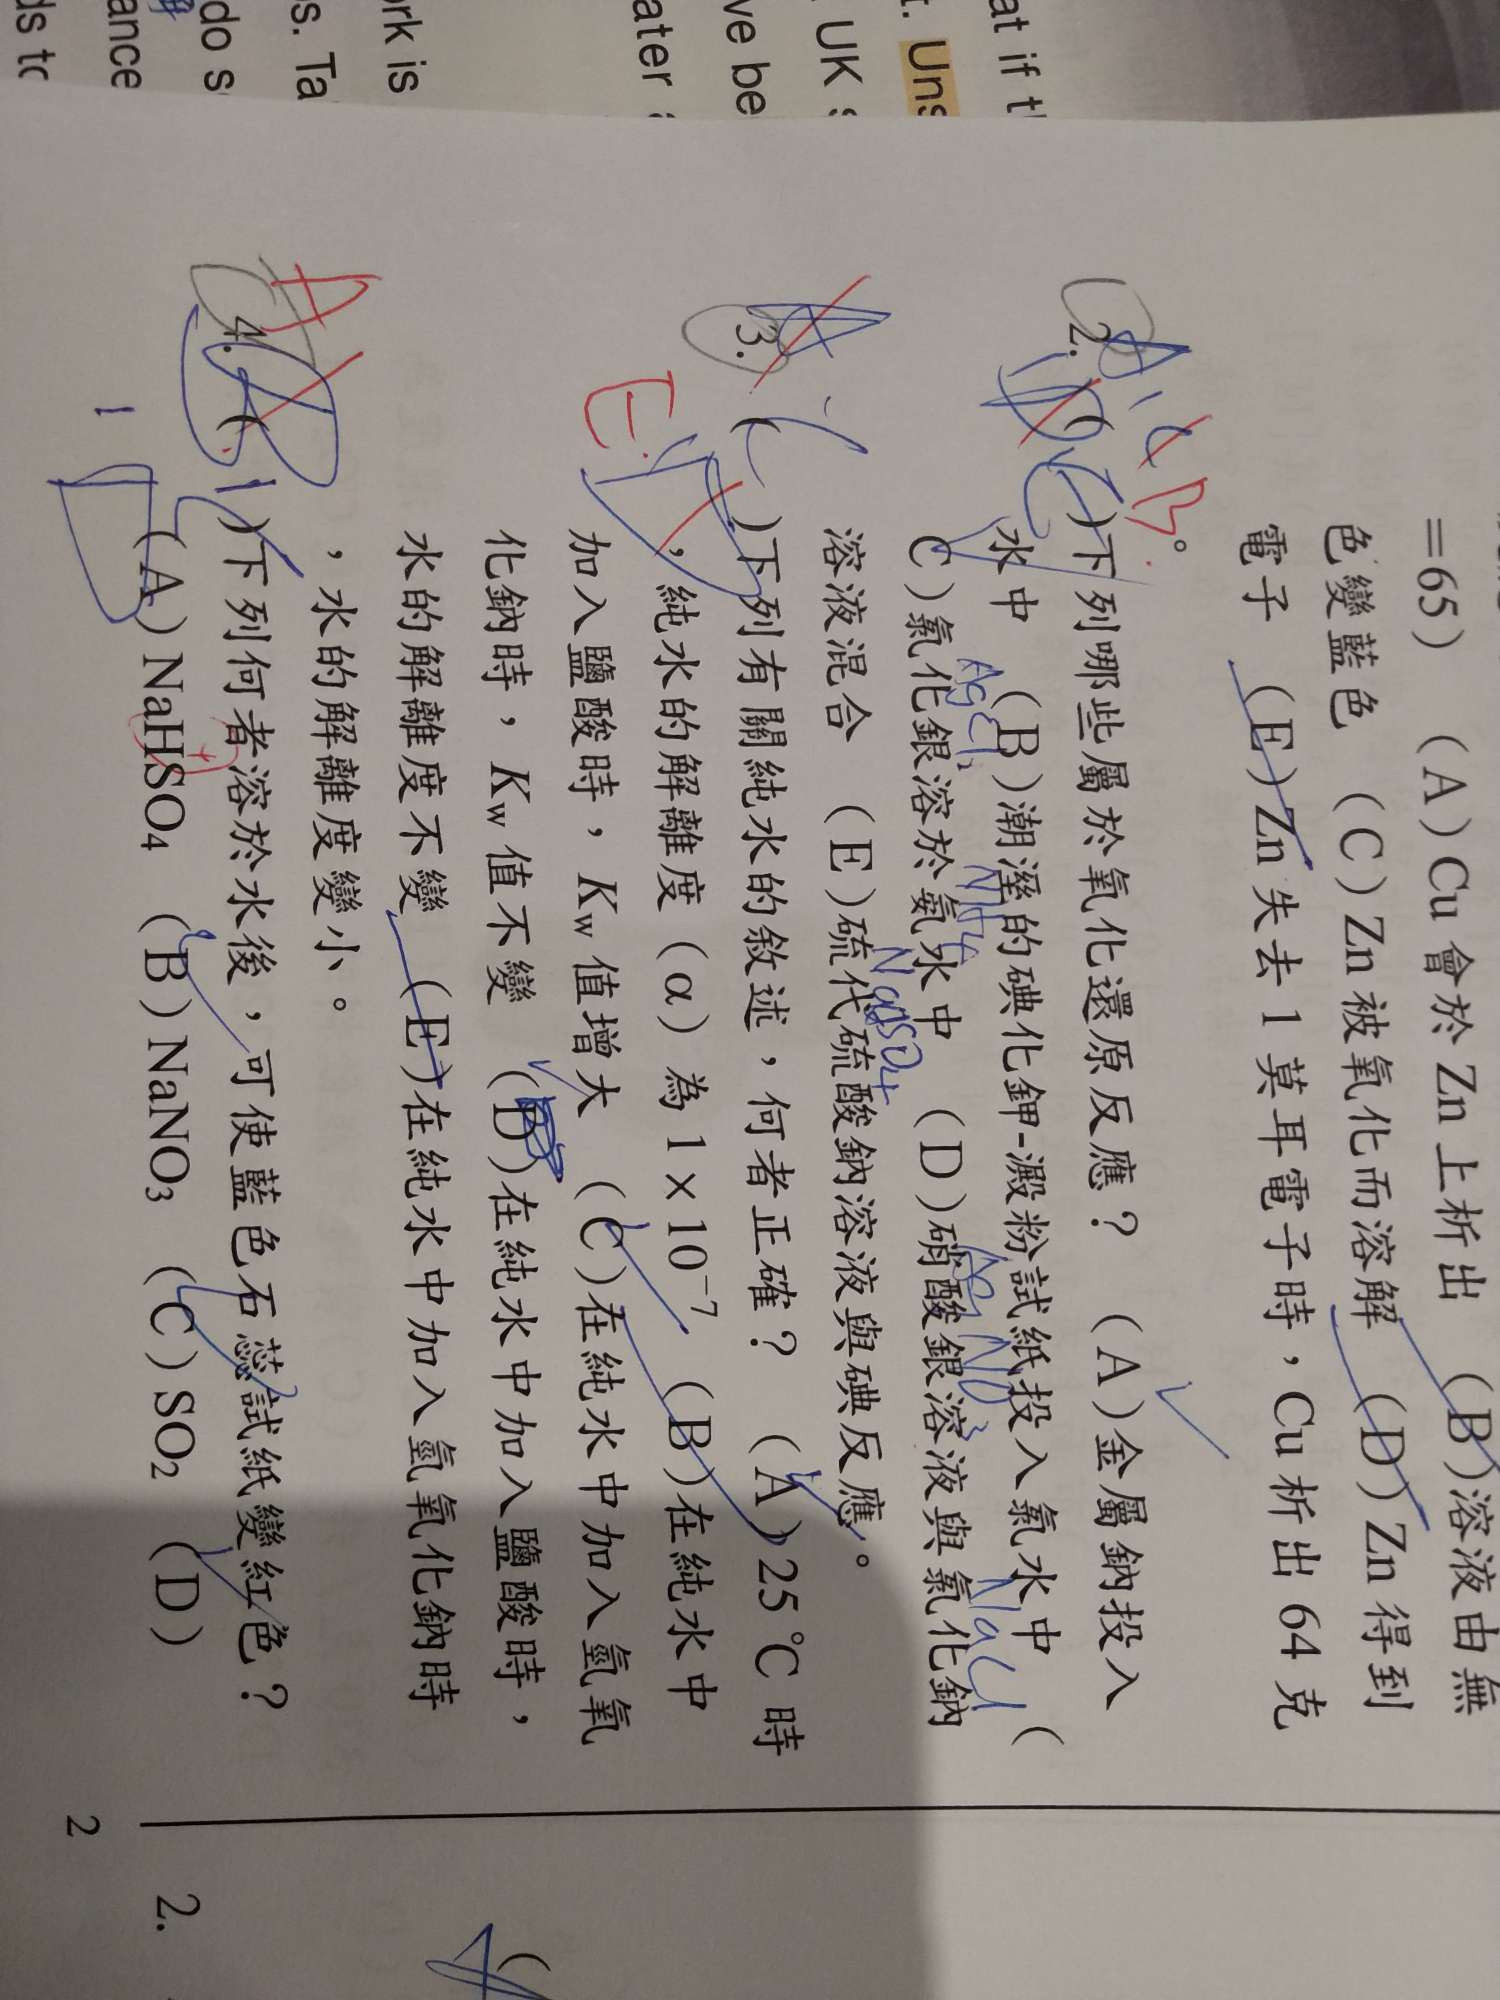 at if
t. Uns
UK
ve be
ater
rk is
s. Ta
do s
ance
ds to
=65) (A)Cu會於Zn上析出 (B)溶液由無
色變藍色 (C)Zn被氧化而溶解 (D)Zn得到
電子 (E)Zn失去1莫耳電子時，Cu析出64克
。
A, C B.
D E
2. ( )下列哪些屬於氧化還原反應？ (A)金屬鈉投入
水中 (B)潮溼的碘化鉀-澱粉試紙投入氯水中 (
AgCl NH4 AgNO3 NaCl
C)氯化銀溶於氨水中 (D)硝酸銀溶液與氯化鈉
溶液混合 (E)硫代硫酸鈉溶液與碘反應。
A C
3. ( )下列有關純水的敘述，何者正確？ (A)25℃時
，純水的解離度（α）為1×10⁻⁷ (B)在純水中
E.
加入鹽酸時，Kw值增大 (C)在純水中加入氫氧
化鈉時，Kw值不變 (D)在純水中加入鹽酸時，
水的解離度不變 (E)在純水中加入氫氧化鈉時
，水的解離度變小。
A
4. ( )下列何者溶於水後，可使藍色石蕊試紙變紅色？
(A)NaHSO₄ (B)NaNO₃ (C)SO₂ (D)
2
2. (